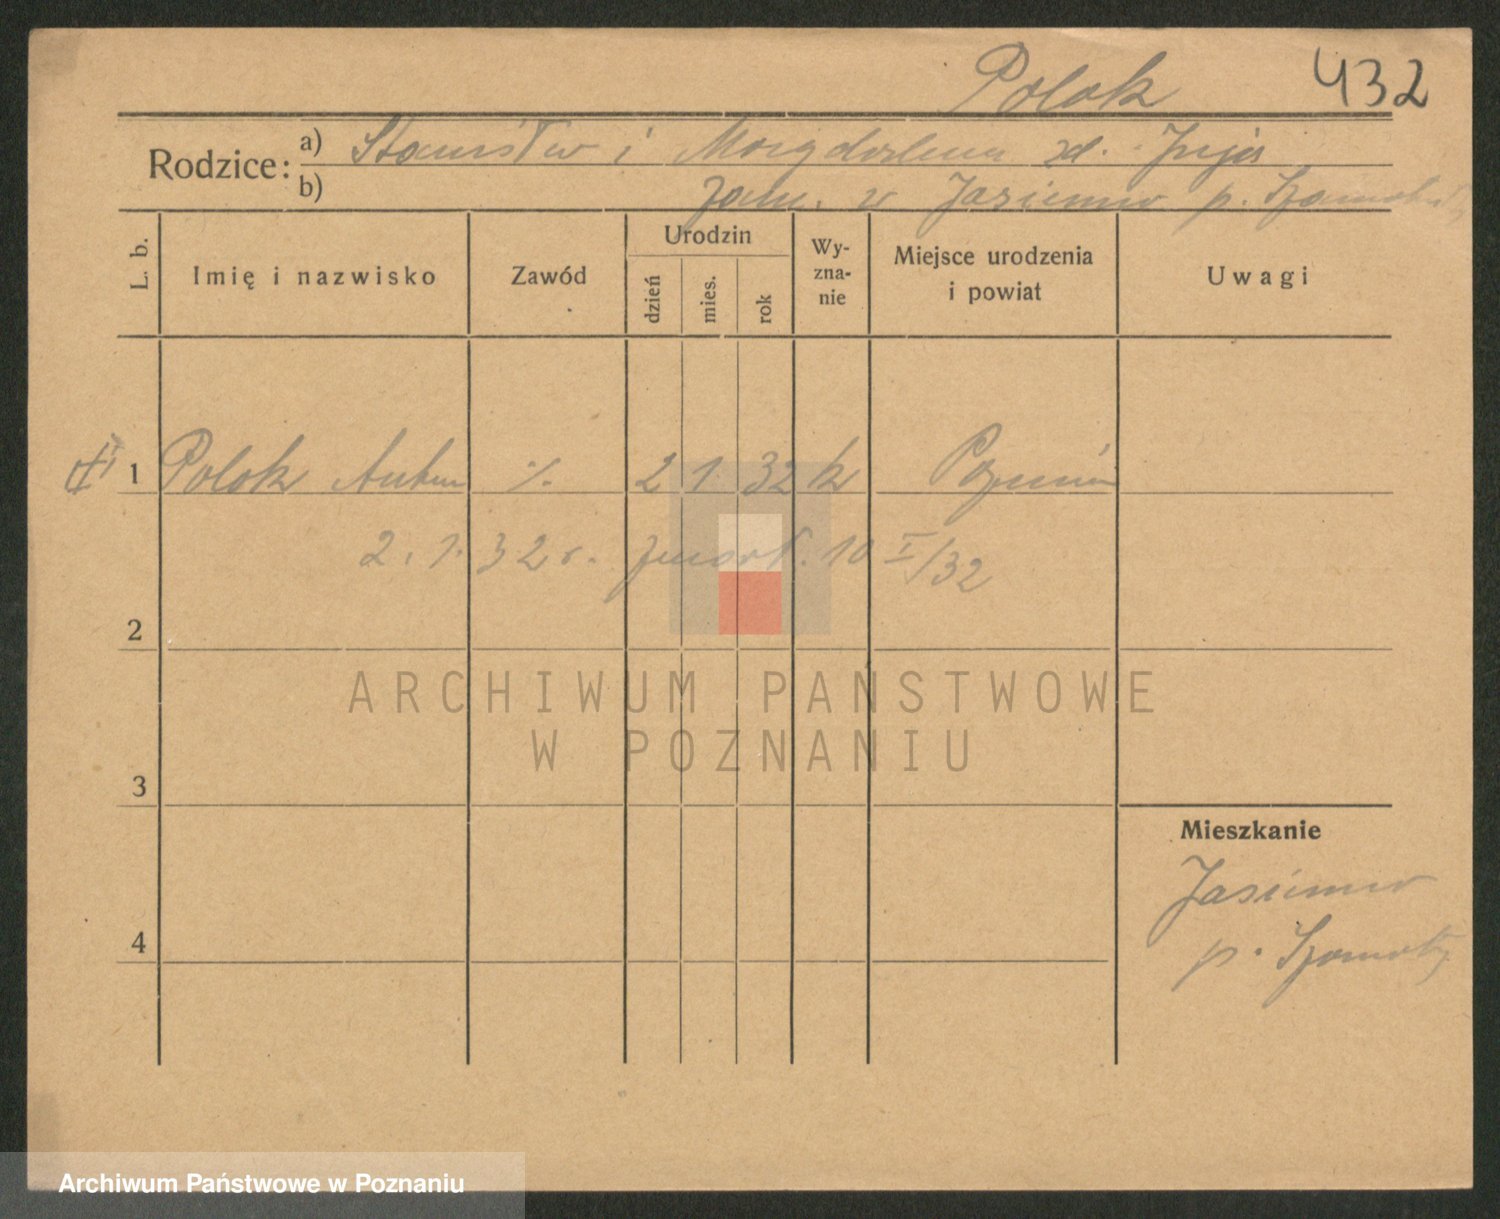 Polok 432
Rodzice: a) Stanisław i Magdalena zd.
b) zam. w Jasieniu p. Szamotuły
L. b.
Imię i nazwisko
Zawód
Urodzin
dzień
mies.
rok
Wy-
zna-
nie
Miejsce urodzenia
i powiat
Uwagi
1 Polok Antoni ./. 2 1 32 k Poznań
2. 1. 32 r. zmarł. 10 I/32
2
3
4
Mieszkanie
p. Szamotuły
ARCHIWUM PAŃSTWOWE
W POZNANIU
Archiwum Państwowe w Poznaniu